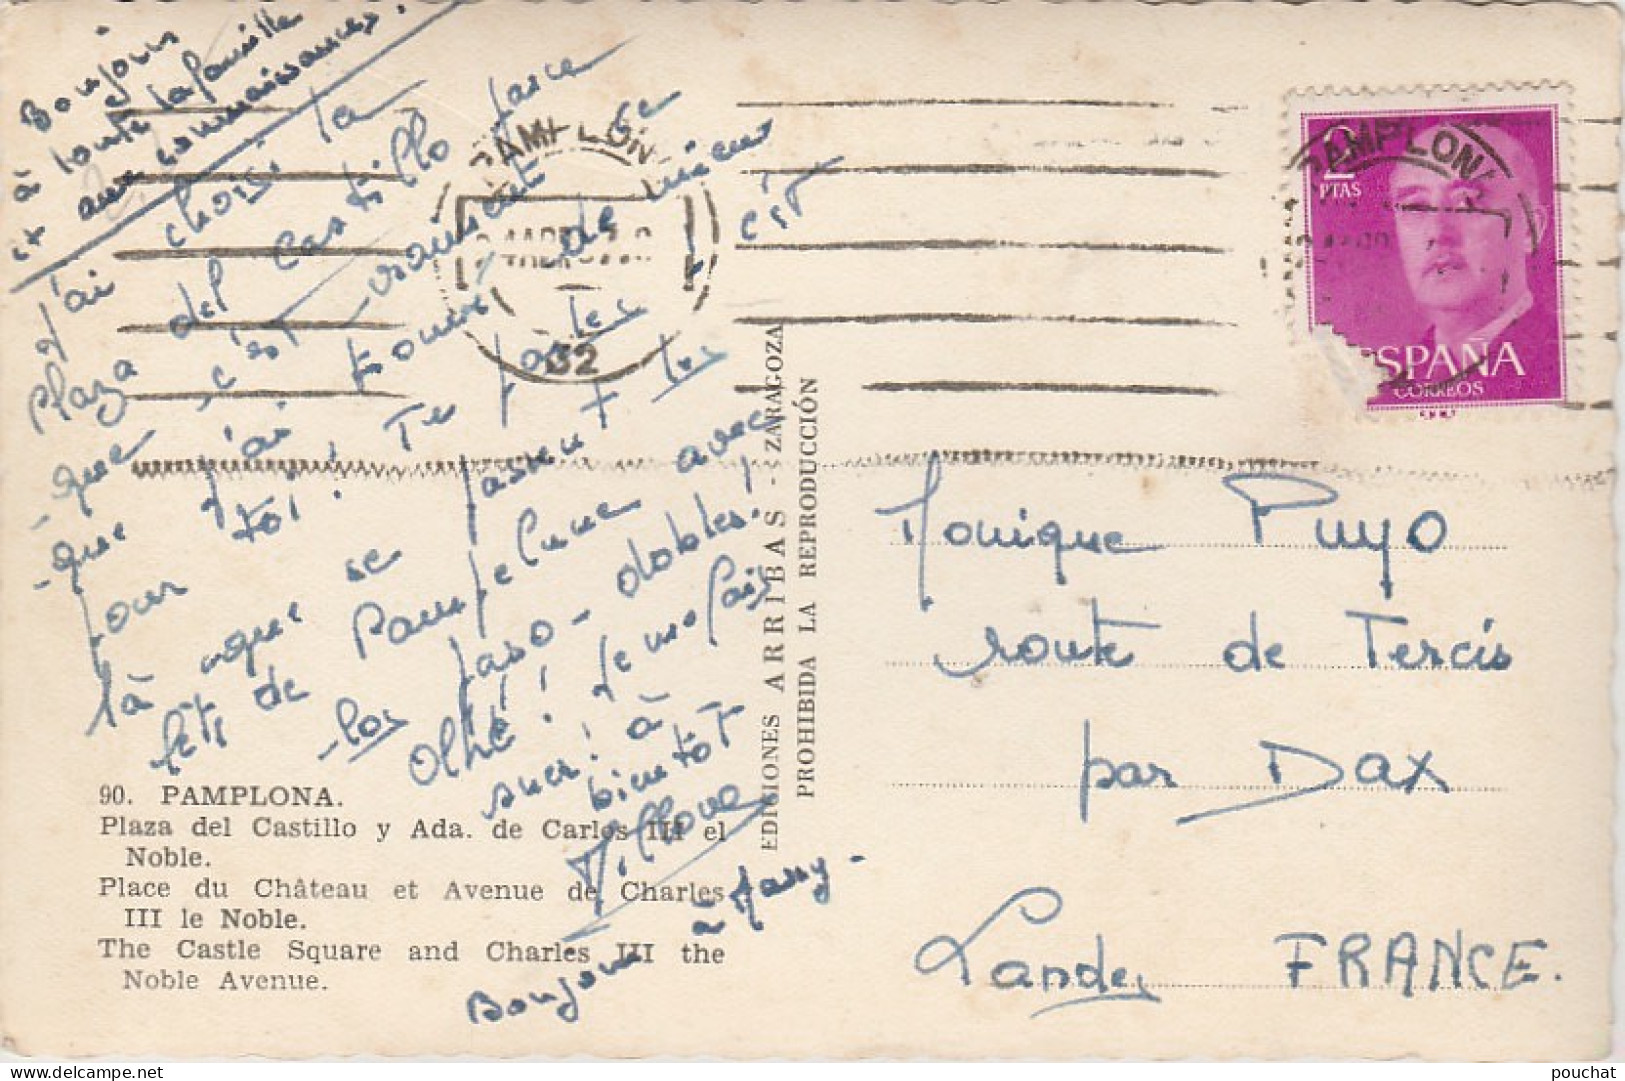 Bonjour
à toute la famille
et aux connaissances.
J'ai choisi la
Plaza del Castillo parce
que c'est vraiment ce
que j'ai trouvé de mieux
pour toi! Tu parles! c'est
là que se passent los
fêtes de Pampelune avec
los paso-dobles!
Olhé! Je me fais
suer! à
bientôt
Bonjour à Many-
90. PAMPLONA.
Plaza del Castillo y Ada. de Carlos III el
Noble.
Place du Château et Avenue de Charles
III le Noble.
The Castle Square and Charles III the
Noble Avenue.
EDICIONES ARRIBAS - ZARAGOZA
PROHIBIDA LA REPRODUCCIÓN
PAMPLONA
2
PTAS
PAMPLONA
ESPAÑA
CORREOS
Monique Puyo
route de Tercis
par Dax
Landes FRANCE.
pouchat